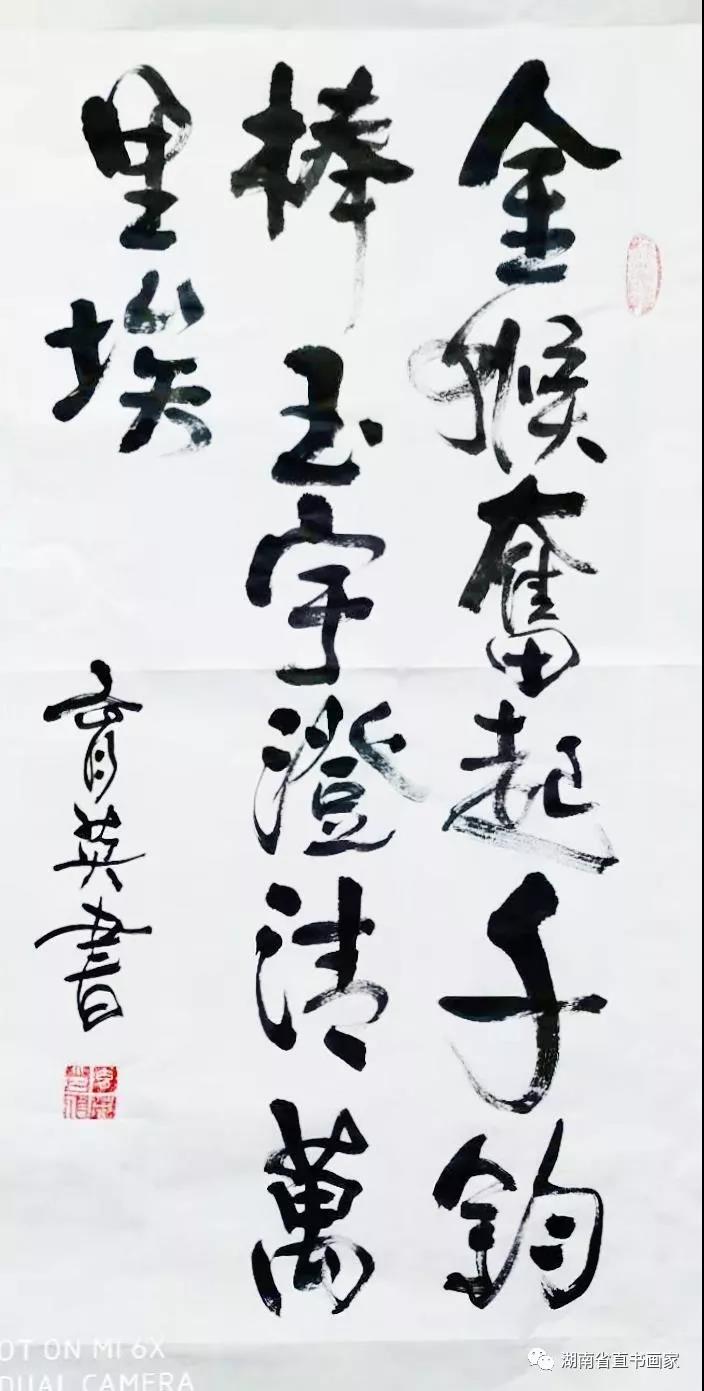 金猴奮起千鈞
棒玉宇澄清萬
里埃
育英書
OT ON MI 6X
DUAL CAMERA
湖南省直书画家